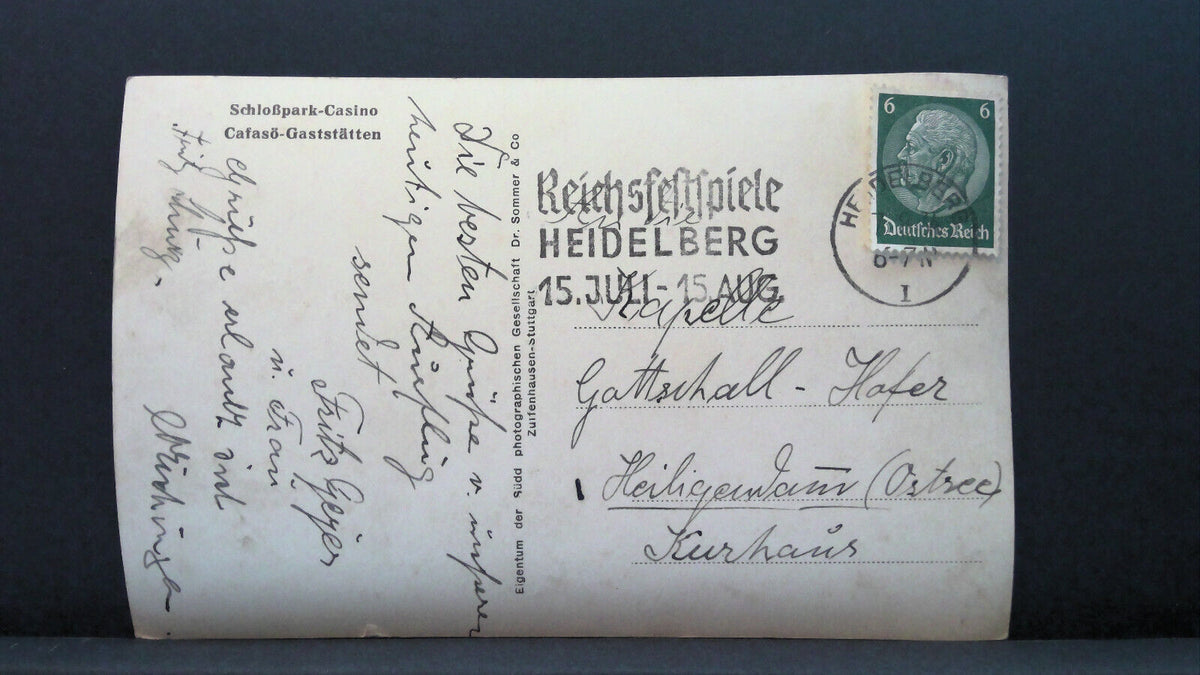 Schloßpark-Casino
Cafasö-Gaststätten
Die besten Grüße v. unserem
heutigen Ausflug
sendet
Fritz Geyer
u. Frau.
Grüße erlaubt sich
Fritz
Eigentum der Südd photographischen Gesellschaft Dr. Sommer & Co
Zuffenhausen-Stuttgart
Reichsfestspiele
HEIDELBERG
15. JULI - 15. AUG.
6 6
Deutsches Reich
HEIDELBERG
6-7 N
1
An die
Kapelle
Gottschall - Hofer
Heiligendamm (Ostsee)
Kurhaus